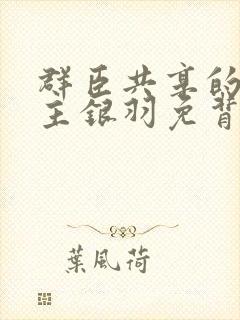 群臣共享的
主银羽免背
葉風荷